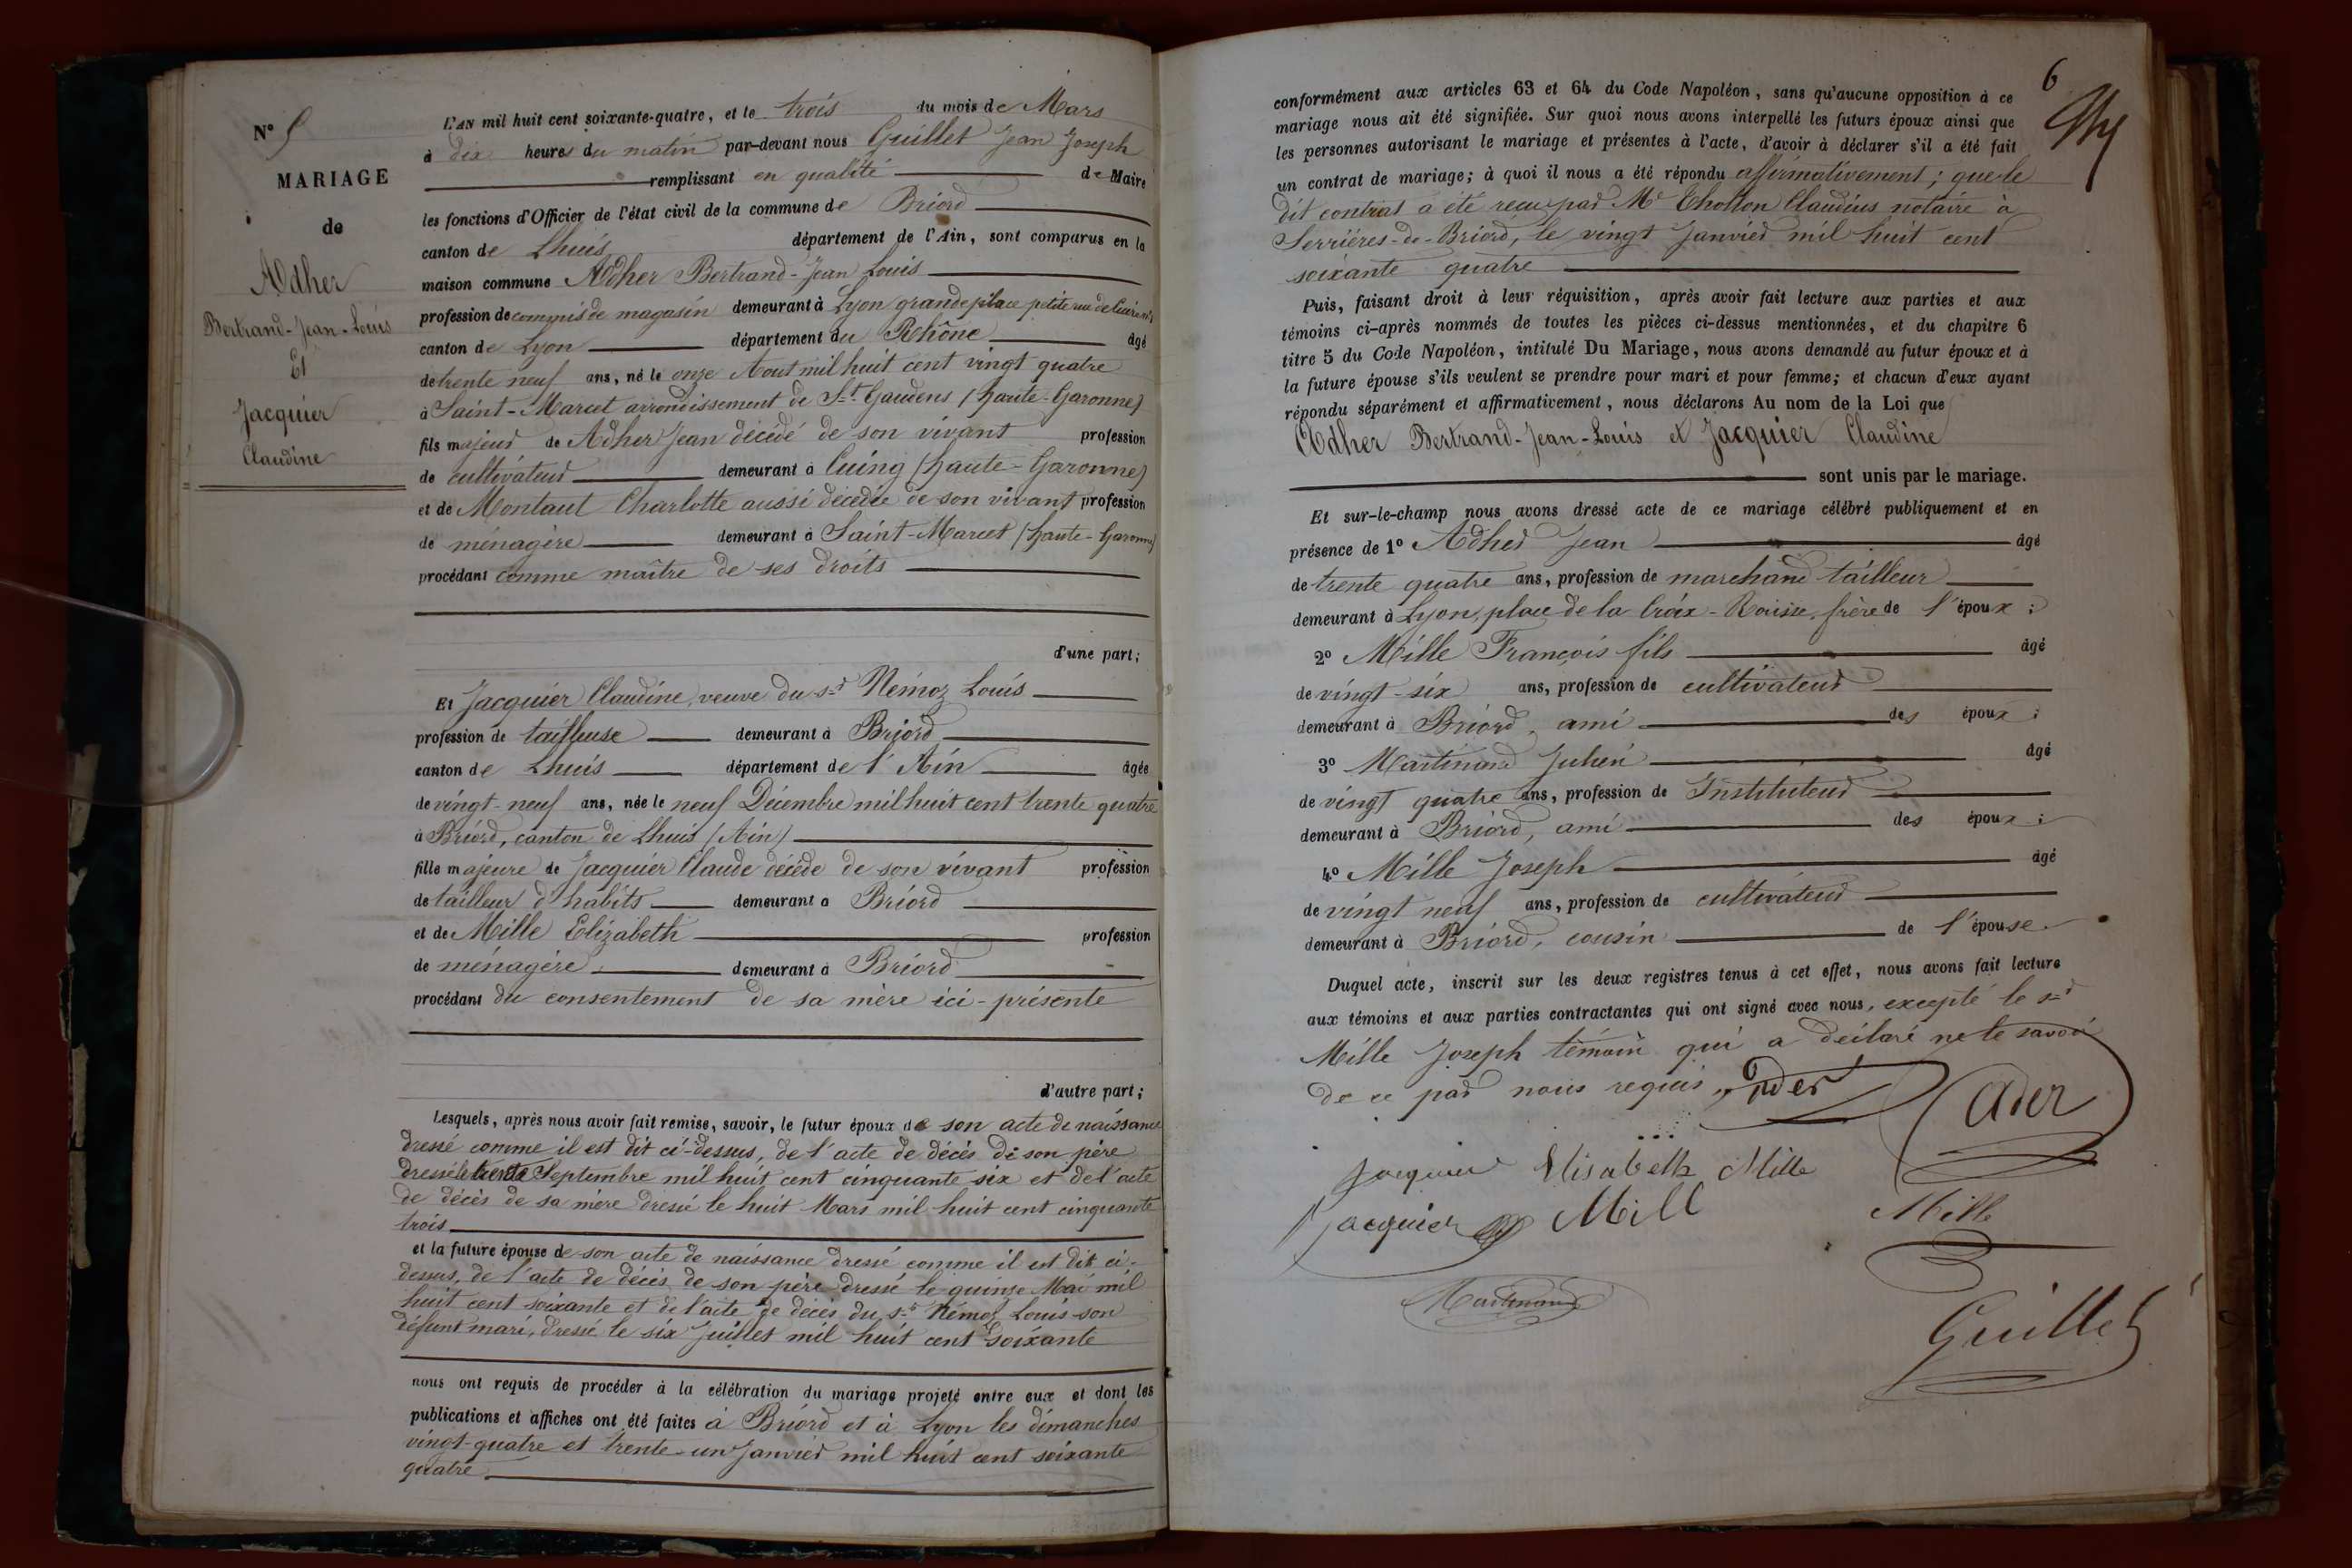 N° 5
MARIAGE
de
Adher
Bertrand-Jean-Louis
Et
Jacquier
Claudine
L'AN mil huit cent soixante-quatre, et le trois du mois de Mars
à dix heures du matin par-devant nous Guillet Jean Joseph
remplissant en qualité de Maire
les fonctions d'Officier de l'état civil de la commune de Briord
canton de Lhuis département de l'Ain, sont comparus en la
maison commune Adher Bertrand-Jean Louis
profession de commis de magasin demeurant à Lyon grande place petite rue de Cuire
canton de Lyon département du Rhône âgé
de trente neuf ans, né le onze Aout mil huit cent vingt quatre
à Saint-Marcet arrondissement de St. Gaudens (haute-Garonne)
fils majeur de Adher Jean décédé de son vivant profession
de cultivateur demeurant à Cuing (haute-Garonne)
et de Montaut Charlotte aussi décédée de son vivant profession
de ménagère demeurant à Saint-Marcet (haute-Garonne)
procédant comme maître de ses droits
d'une part;
Et Jacquier Claudine, veuve du sr Nemoz Louis
profession de tailleuse demeurant à Briord
canton de Lhuis département de l'Ain âgée
de vingt-neuf ans, née le neuf Décembre mil huit cent trente quatre
à Briord, canton de Lhuis (Ain)
fille majeure de Jacquier Claude décédé de son vivant profession
de tailleur d'habits demeurant à Briord
et de Mille Elizabeth profession
de ménagère demeurant à Briord
procédant du consentement de sa mère ici-présente
d'autre part;
Lesquels, après nous avoir fait remise, savoir, le futur époux de son acte de naissance
dressé comme il est dit ci-dessus, de l'acte de décès de son père
dressé le trente Septembre mil huit cent cinquante six et de l'acte
de décès de sa mère dressé le huit Mars mil huit cent cinquante
trois
et la future épouse de son acte de naissance dressé comme il est dit ci-
dessus, de l'acte de décès de son père dressé le quinze Mai mil
huit cent soixante et de l'acte de décès du sr Némoz Louis son
défunt mari, dressé le six Juillet mil huit cent soixante
nous ont requis de procéder à la célébration du mariage projeté entre eux et dont les
publications et affiches ont été faites à Briord et à Lyon les dimanches
vingt-quatre et trente-un Janvier mil huit cent soixante
quatre
6
conformément aux articles 63 et 64 du Code Napoléon, sans qu'aucune opposition à ce
mariage nous ait été signifiée. Sur quoi nous avons interpellé les futurs époux ainsi que
les personnes autorisant le mariage et présentes à l'acte, d'avoir à déclarer s'il a été fait
un contrat de mariage; à quoi il nous a été répondu affirmativement; que le
dit contrat a été reçu par Me Chollon Claudius notaire à
Serrières-de-Briord, le vingt Janvier mil huit cent
soixante quatre
Puis, faisant droit à leur réquisition, après avoir fait lecture aux parties et aux
témoins ci-après nommés de toutes les pièces ci-dessus mentionnées, et du chapitre 6
titre 5 du Code Napoléon, intitulé Du Mariage, nous avons demandé au futur époux et à
la future épouse s'ils veulent se prendre pour mari et pour femme; et chacun d'eux ayant
répondu séparément et affirmativement, nous déclarons Au nom de la Loi que
Adher Bertrand-Jean-Louis et Jacquier Claudine
sont unis par le mariage.
Et sur-le-champ nous avons dressé acte de ce mariage célébré publiquement et en
présence de 1° Adher Jean âgé
de trente quatre ans, profession de marchand tailleur
demeurant à Lyon, place de la Croix-Rousse, frère de l'époux;
2° Mille François fils âgé
de vingt-six ans, profession de cultivateur
demeurant à Briord, ami des époux;
3° Martinand Julien âgé
de vingt quatre ans, profession de Instituteur
demeurant à Briord, ami des époux;
4° Mille Joseph âgé
de vingt neuf ans, profession de cultivateur
demeurant à Briord, cousin de l'épouse.
Duquel acte, inscrit sur les deux registres tenus à cet effet, nous avons fait lecture
aux témoins et aux parties contractantes qui ont signé avec nous, excepté le sr
Mille Joseph témoin qui a déclaré ne le savoir
de ce par nous requis. Ader
Ader
Jacquier Elisabeth Mille
Jacquier Mill Mille
Martinand
Guillet